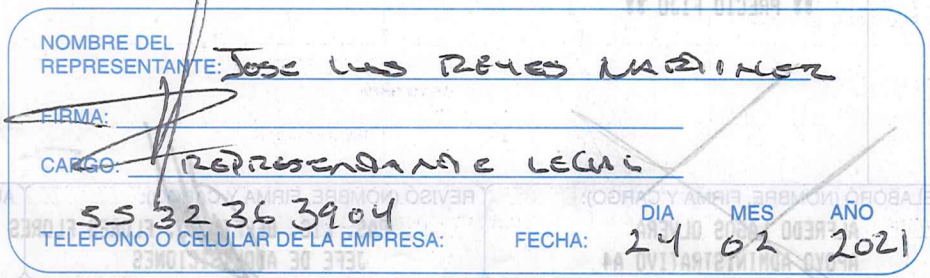 NOMBRE DEL
REPRESENTANTE: JOSE LUIS REYES MARTINEZ
FIRMA:
CARGO: REPRESENTANTE LEGAL
55 32 36 3904
TELEFONO O CELULAR DE LA EMPRESA:
FECHA:
DIA MES AÑO
24 02 2021